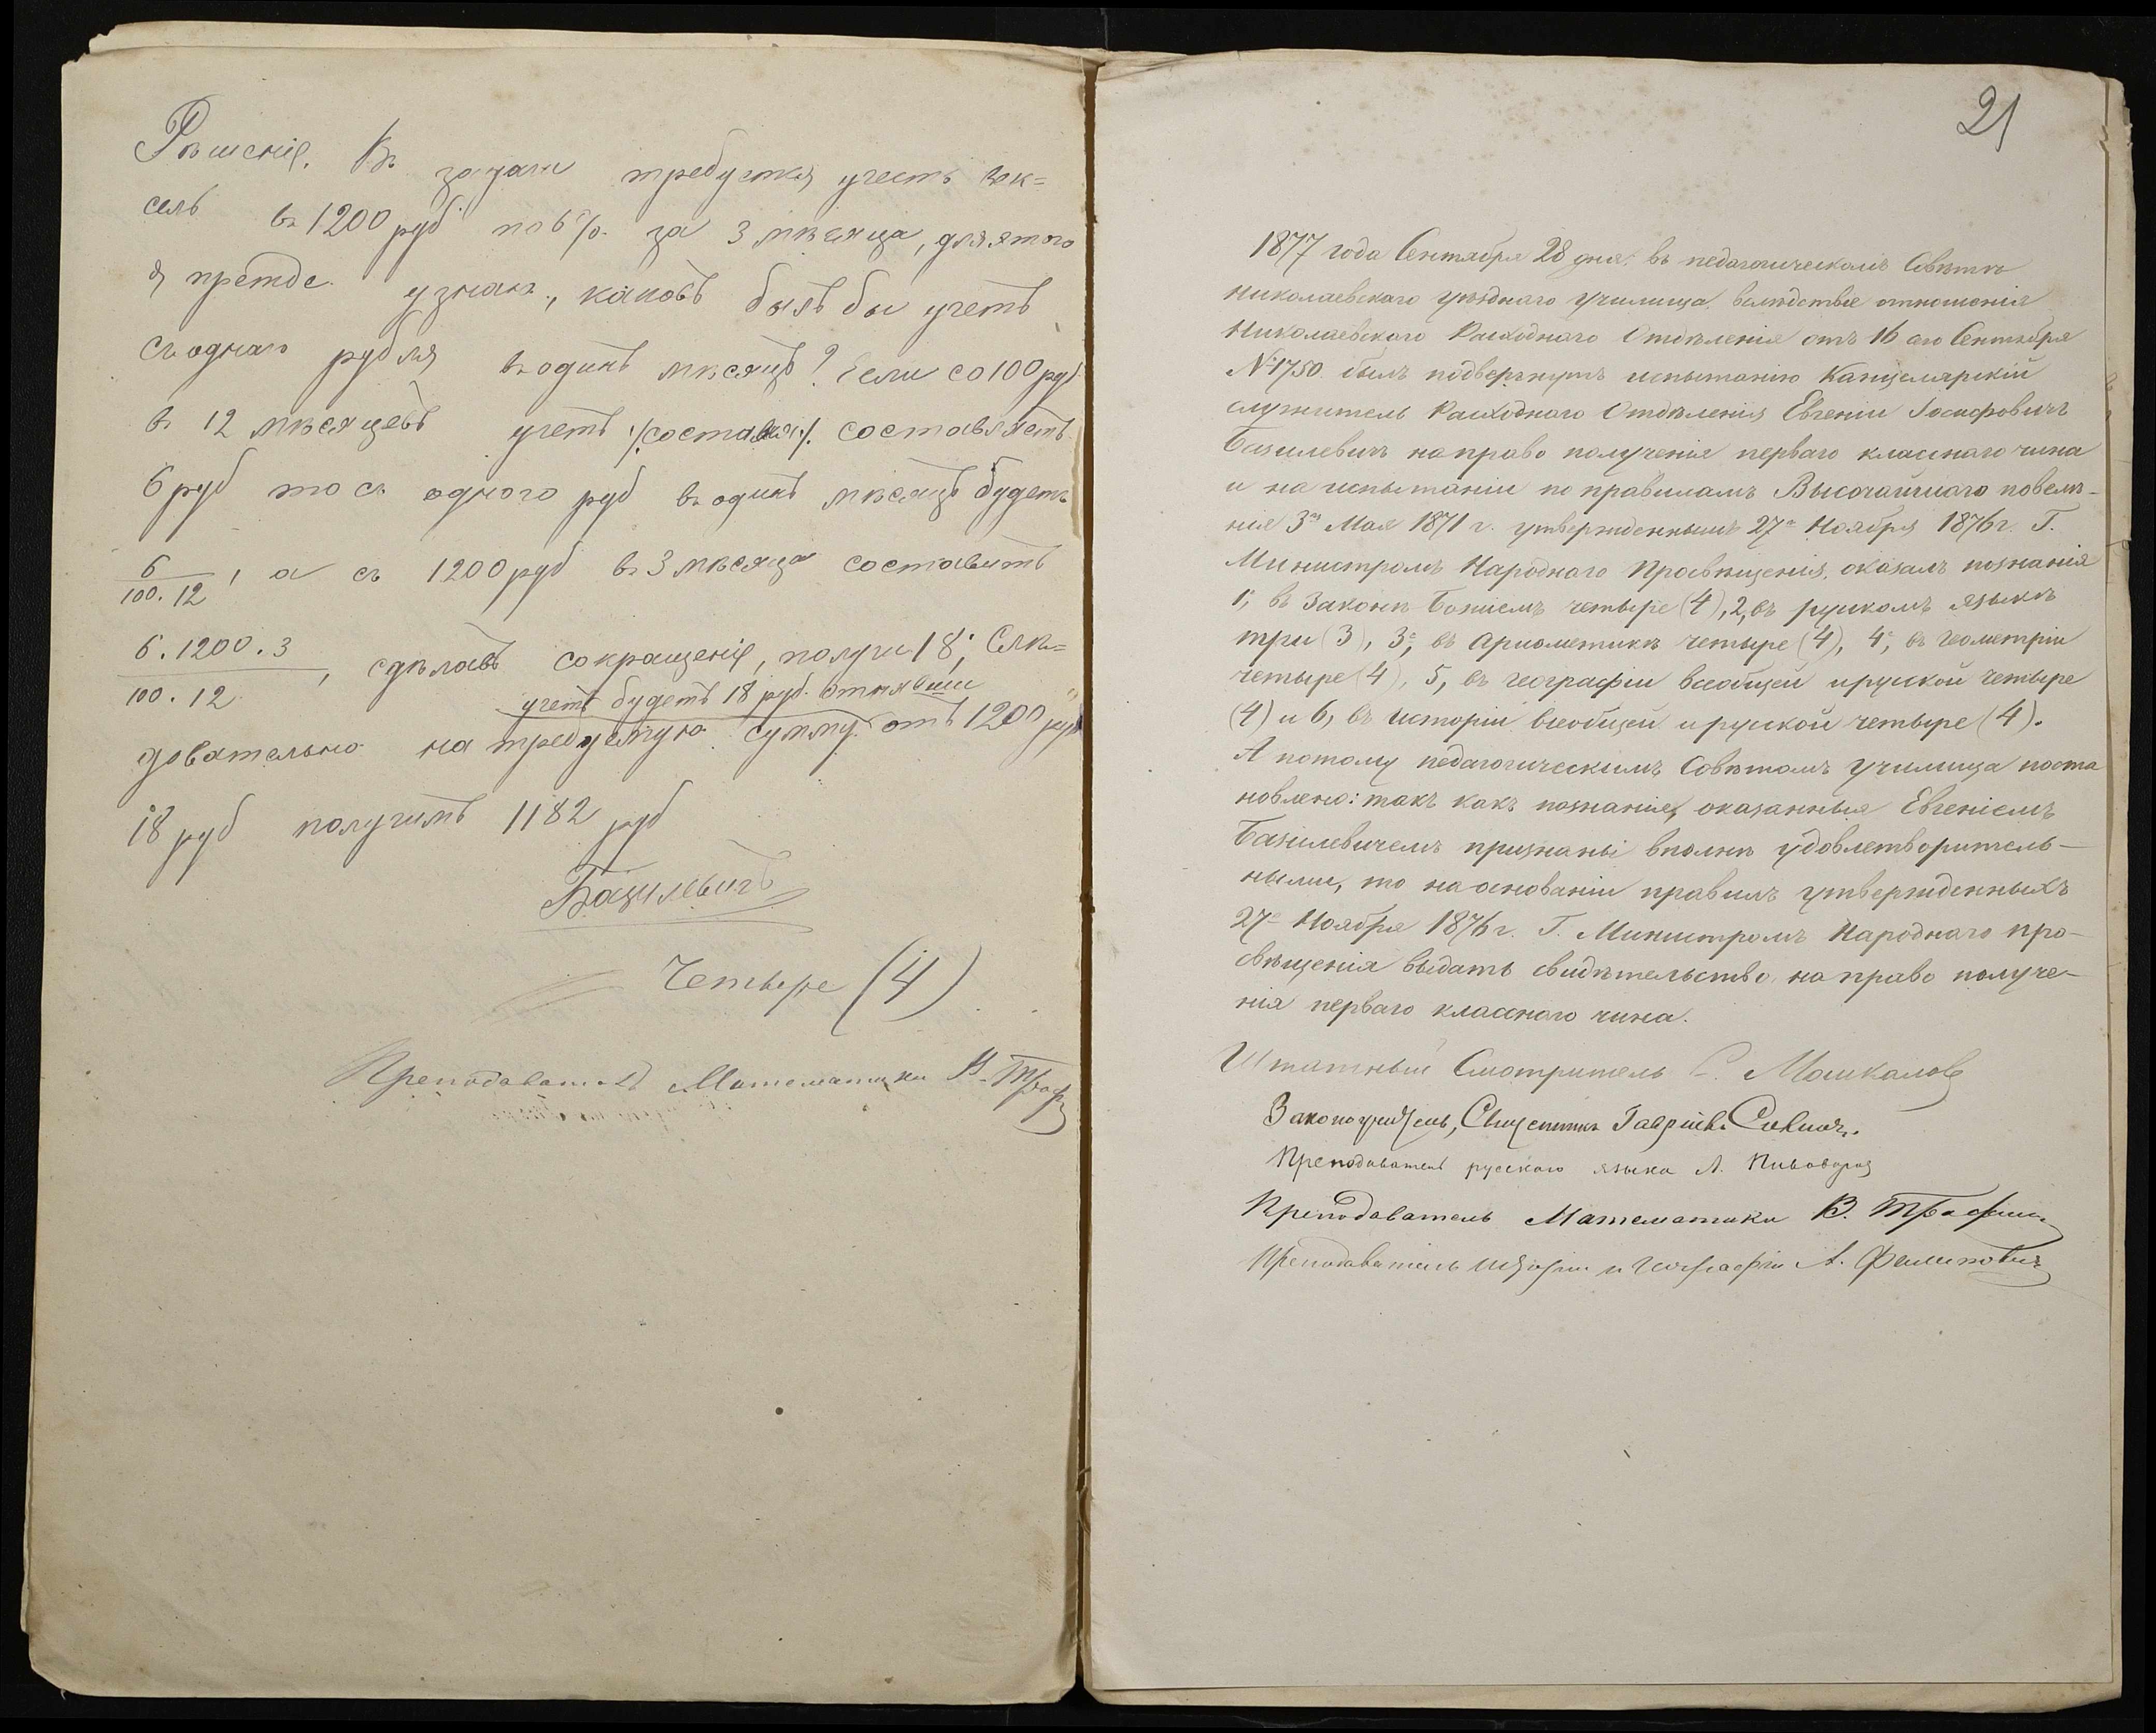 Рѣшеніе. Въ задачи требуется учесть век=
сель въ 1200 руб по 6%. за 3 мѣсяца, для этого
я прежде узнаю, каковъ былъ бы учетъ
съ одного рубля въ одинъ мѣсяцъ? Если со 100 руб
въ 12 мѣсяцевъ учетъ ·/.составля·/. составляетъ
6 руб то съ одного руб въ одинъ мѣсяцъ будетъ
6/100.12, а съ 1200 руб въ 3 мѣсяца составитъ
6.1200.3/100.12, сдѣлавъ сокращеніе, получи 18; Слѣ=
учетъ будетъ 18 руб. отнявши
довательно на требуемую сумму отъ 1200 руб
18 руб получимъ 1182 руб
Базилевичъ
Четыре (4)
Преподаватель Математики В.
21
1877 года Сентября 28 дня. въ педагогическомъ Совѣтѣ
Николаевскаго уѣзднаго училища, вслѣдствіе отношенія
Николаевскаго Расходнаго Отдѣленія отъ 16 аго Сентября
№ 1750. былъ подвергнутъ испытанію Канцелярскій
служитель Расходнаго Отдѣленія Евгеній Іосифовичъ
Базилевичъ на право полученія перваго класснаго чина
и на испытаніи по правиламъ Высочайшаго повелѣ-
нія 3го Мая 1871 г. утвержденнымъ 27го Ноября 1876 г. Г.
Министромъ Народнаго Просвѣщенія, оказалъ познанія
1, въ Законѣ Божіемъ четыре (4), 2, въ рускомъ языкѣ
три (3), 3, въ Ариѳметикѣ четыре (4), 4, въ геометріи
четыре (4), 5, въ географіи всеобщей и руской четыре
(4) и 6, въ Исторіи всеобщей и руской четыре (4).
А потому педагогическимъ Совѣтомъ училища поста
новлено: такъ какъ познанія, оказанныя Евгеніемъ
Базилевичемъ признаны вполнѣ удовлетворитель-
ными, то на основаніи правилъ утвержденныхъ
27го Ноября 1876 г. Г. Министромъ Народнаго Про-
свѣщенія выдать свидѣтельство на право получе-
нія перваго класснаго чина.
Штатный Смотритель С. Машкаловъ
Законоучитель, Священникъ Гавріилъ
Преподаватель русскаго языка Л.
Преподаватель Математики В.
Преподаватель исторіи и географіи А. Филиповичъ